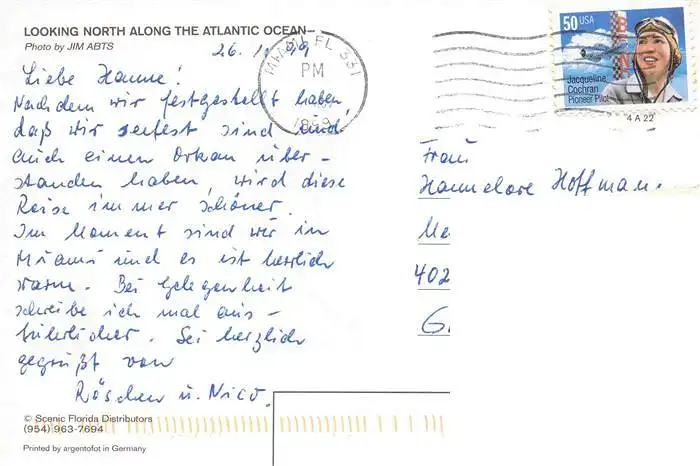 LOOKING NORTH ALONG THE ATLANTIC OCEAN
Photo by JIM ABTS
MIAMI FL 331
PM
50 USA
Jacqueline
Cochran
Pioneer Pilot
4 A 22
Liebe Hanne!
Nachdem wir festgestellt haben,
daß wir seefest sind und
auch einen Orkan über-
standen haben, wird diese
Reise immer schöner.
Im Moment sind wir in
Miami und es ist herrlich
warm. Bei Gelegenheit
schreibe ich mal aus-
führlicher. Sei herzlich
gegrüßt von
Röschen u. Nico.
Frau
Hannelore Hoffman
Me
402
G
© Scenic Florida Distributors
(954) 963-7694
Printed by argentofot in Germany